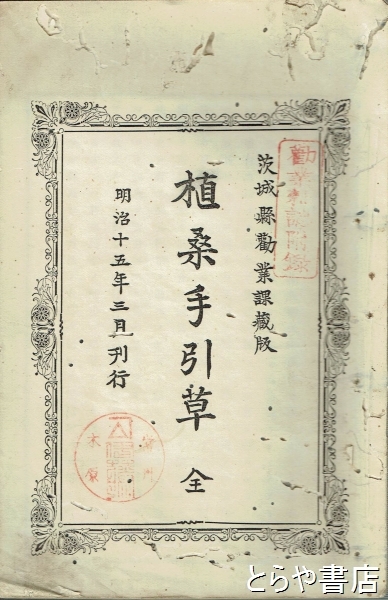 茨城縣勸業課藏版
植桑手引草 全
明治十五年三月刊行
勸業雜誌附錄
とらや書店